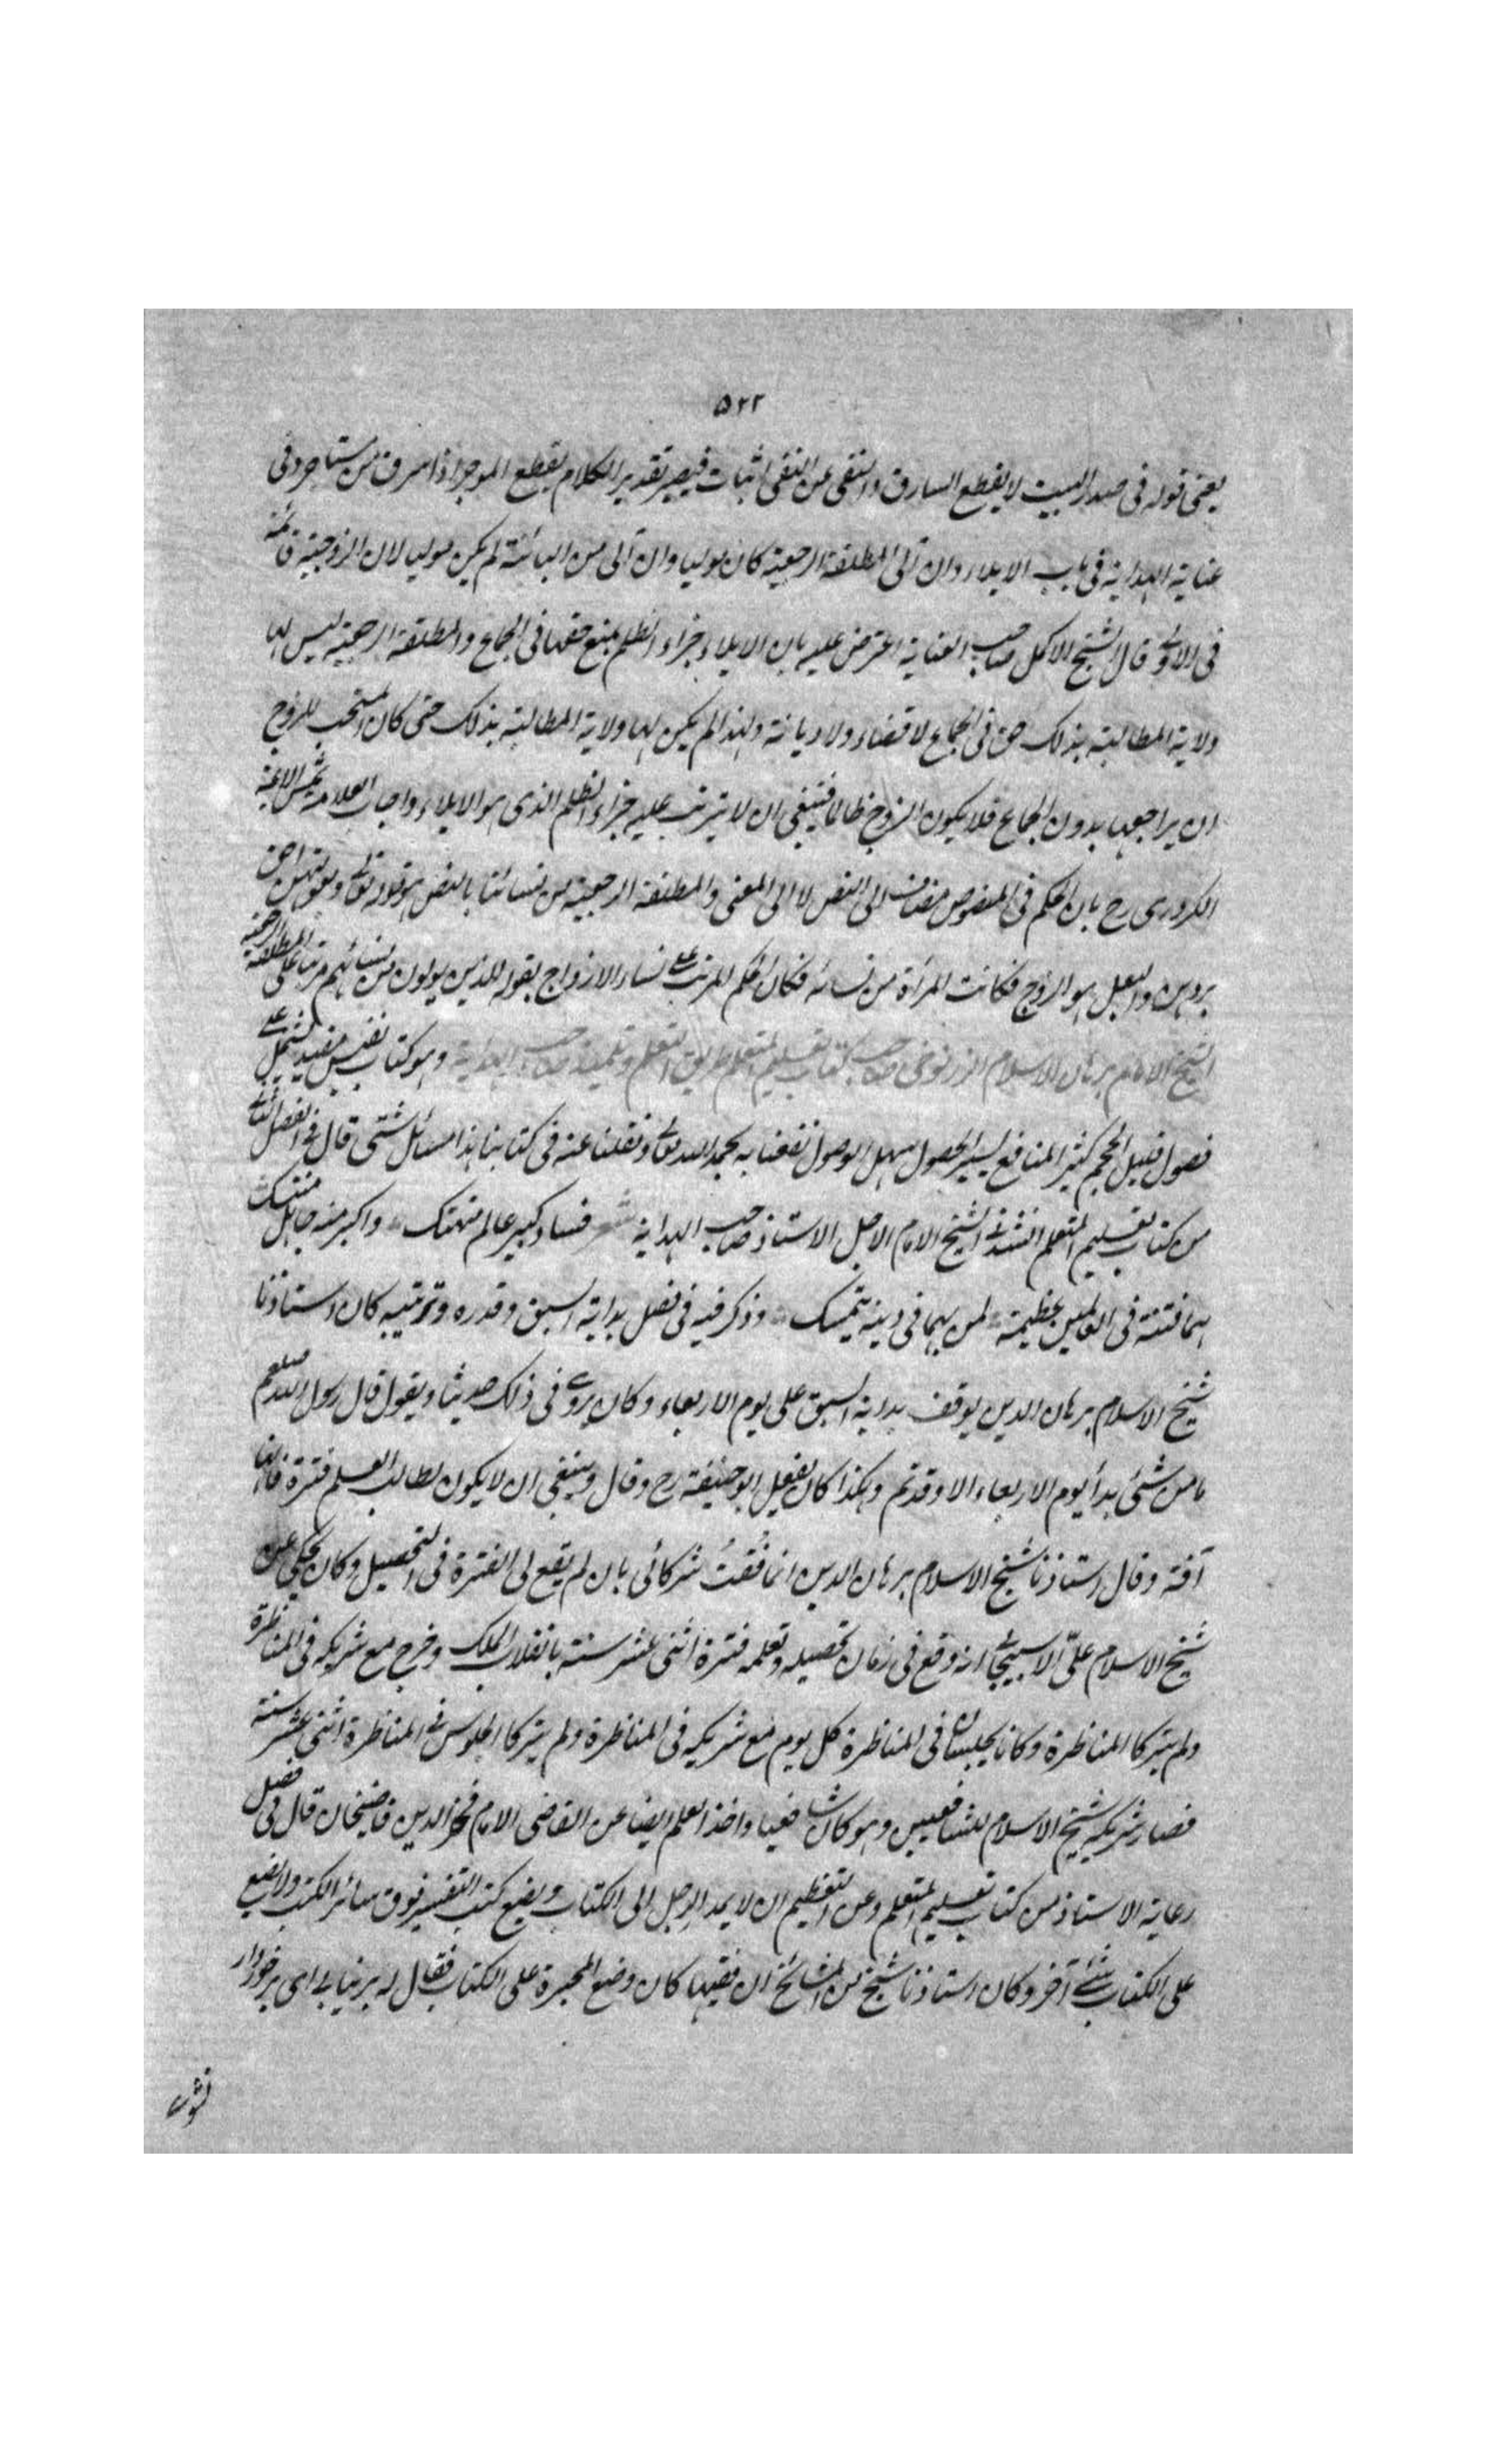 ٥٢٢
يعنى قوله فى صدر البيت لا يقطع السارق والنفى عن النفى اثبات فيصير تقدير الكلام يقطع الموجر اذا سرق من مستاجر وفى
عناية الهداية فى باب الايلاء وان آلى المطلقة الرجعية كان موليا وان آلى من البائنة لم يكن موليا لان الزوجية قائمة
فى الاولى قال الشيخ الاكمل صاحب العناية اعترض عليه بان الايلاء جزاء الظلم بمنع حقها فى الجماع والمطلقة الرجعية ليس لها
ولاية المطالبة بذلك حق فى الجماع لا قضاء ولا ديانة ولهذا لم يكن لها ولاية المطالبة بذلك حتى كان المستحب للزوج
ان يراجعها بدون الجماع فلا يكون الزوج ظالما فينبغى ان لا يترتب عليه جزاء الظلم الذى هو الايلاء واجاب العلامة شمس الائمة
الكردرى رح بان الحكم فى المنصوص مضاف الى النص لا الى المعنى والمطلقة الرجعية من نسائنا بالنص وهو قوله تعالى وبعولتهن احق
بردهن والبعل هو الزوج فكانت المرأة من نسائه فكان الحكم المرتب على نساء الازواج بقوله للذين يولون من نسائهم مرتبا على المطلقة الرجعية
الشيخ الامام برهان الاسلام الزرنوجى صاحب كتاب تعليم المتعلم طريق التعلم وتلميذ صاحب الهداية وهو كتاب نفيس مفيد مشتمل على
فصول قليل الحجم كثير المنافع يسير الحصول سهل الوصول نفعنا به بحمد الله تعالى ونقلنا عنه فى كتابنا هذا مسائل شتى قال فى الفصل الثانى
من كتاب تعليم المتعلم انشدنى الشيخ الامام الاجل الاستاذ صاحب الهداية شعر فساد كبير عالم متهتك واكبر منه جاهل متنسك
هما فتنة فى العالمين عظيمة لمن بهما فى دينه يتمسك وذكر فيه فى فصل بداية السبق وقدره وترتيبه كان استاذنا
شيخ الاسلام برهان الدين يوقف بداية السبق على يوم الاربعاء وكان يروى فى ذلك حديثا ويقول قال رسول الله صلعم
ما من شئ بدأ يوم الاربعاء الا وقد تم وهكذا كان يفعل ابو حنيفة رح وقال وينبغى ان لا يكون لطالب العلم فترة فانها
آفة وقال استاذنا شيخ الاسلام برهان الدين انما فُقتُ شركائى بان لم يقع لى الفترة فى التحصيل وكان يحكى عن
شيخ الاسلام علىّ الاسبيجابى انه وقع فى زمان تحصيله وتعلمه فترة اثنى عشر سنة بانقلاب الملك وخرج مع شريكه فى المناظرة
ولم يتركا المناظرة وكانا يجلسان فى المناظرة كل يوم مع شريكه فى المناظرة ولم يتركا الجلوس فى المناظرة اثنى عشر سنة
فصار شريكه شيخ الاسلام للشافعيين وهو كان شافعيا واخذ العلم ايضا عن القاضى الامام فخر الدين قاضيخان قال فى فصل
رعاية الاستاذ من كتاب تعليم المتعلم وعن التعظيم ان لا يمد الرجل الى الكتاب ويضع كتب التفسير فوق سائر الكتب ولا يضع
على الكتاب شئ آخر وكان استاذنا شيخ من المشائخ ان فقيها كان وضع المحبرة على الكتاب فقال له برنيابى اى برخوردار